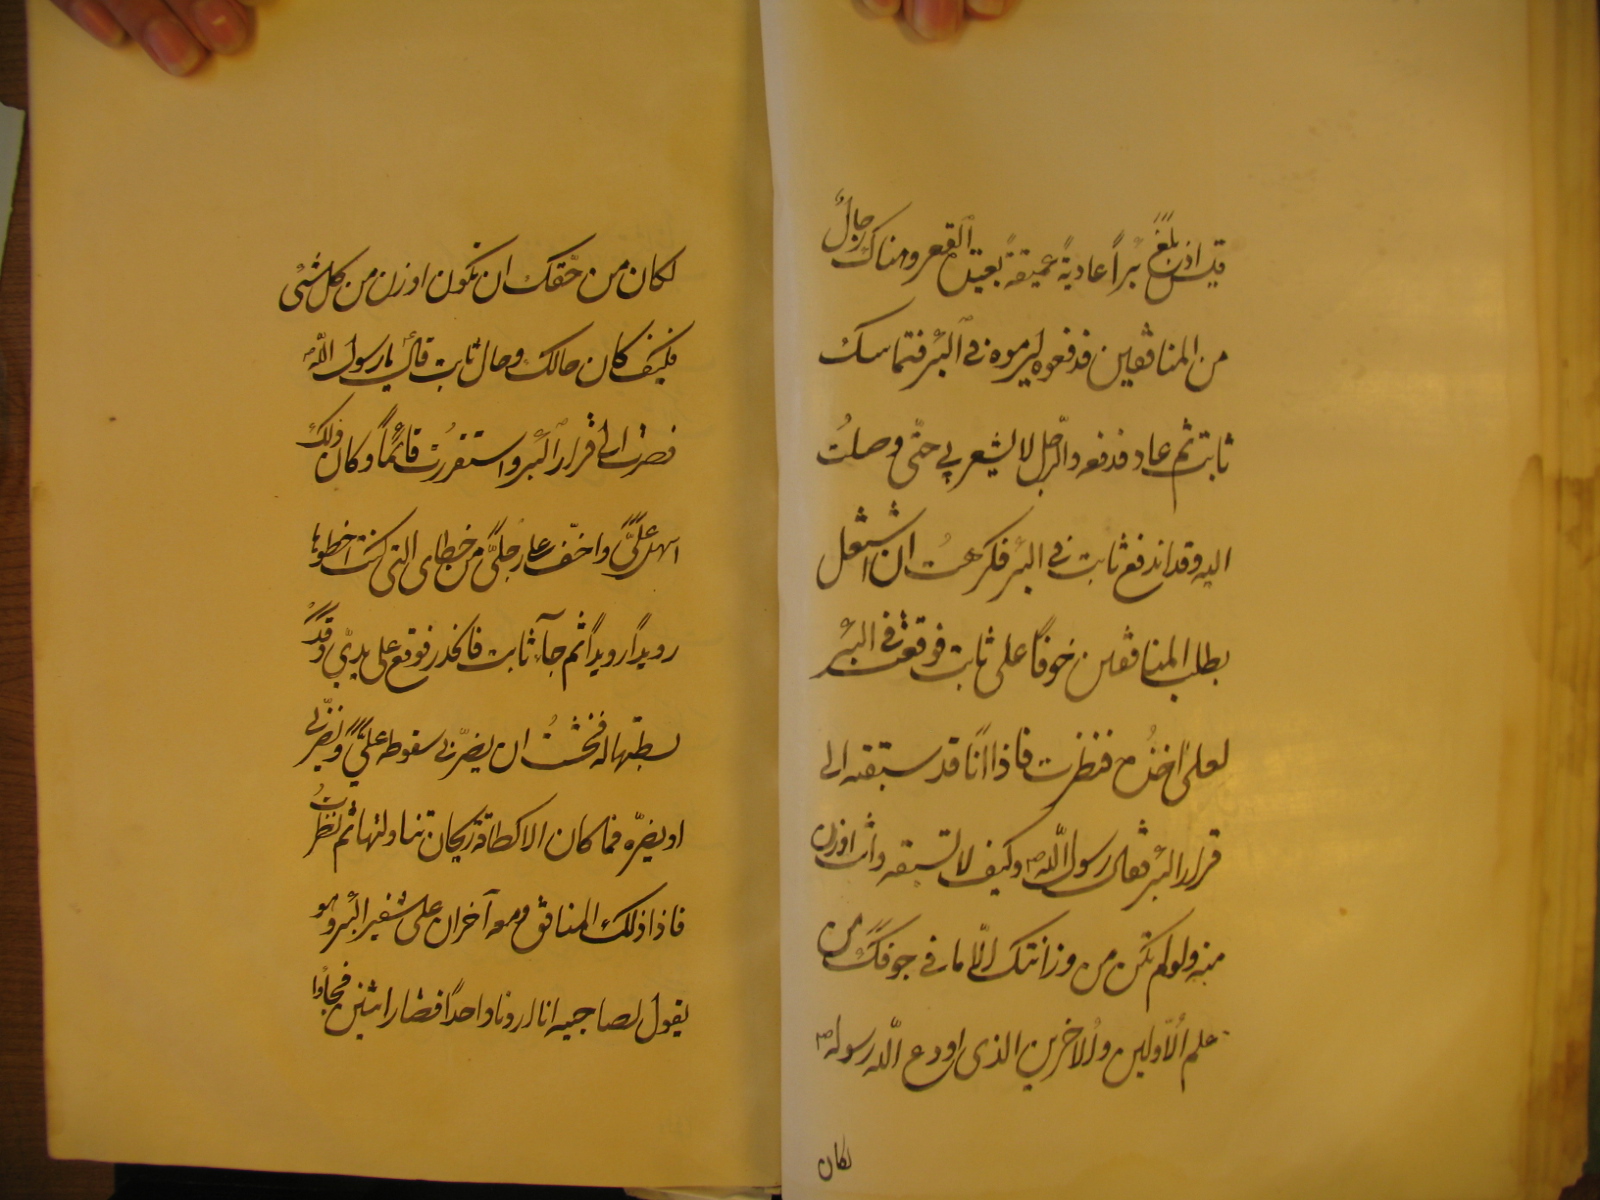 قيس اذ بلغ بئراً عادية عميقة بعيدة القعر وهناك رجال
من المنافقين فدفعوه ليرموه في البئر فتماسك
ثابت ثم عاد فدفعه والرجل لا يشعر بي حتّى وصلتُ
اليه وقد اندفع ثابت في البئر فكرهتُ ان اشتغل
بطلب المنافقين خوفاً على ثابت فوقعت في البئر
لعلي آخذه فنظرت فاذا انا قد سبقته الى
قرار البئر فقال رسول اللّه ص وكيف لا تسبقه وانت اوزن
منه ولو لم يكن من وزانتك الّا ما في جوفك من
علم الاوّلين والاخرين الذي اودع اللّه رسوله ص
لكان
لكان من حقك ان تكون اوزن من كل شئ
فكيف كان حالك وحال ثابت قال يا رسول اللّه ص
فصرت الى قرار البئر واستقررت قائماً وكان ذلك
اسهل علىَّ واخف على رجلىَّ من خطاى التى كنت اخطوها
رويدا رويداً ثم جآء ثابت فانحدر فوقع على يدي وقد
بسطتها له فخشيت ان يضرّني سقوطه علىَّ
او يضرّه فما كان الا كطاقة ريحان تناولتها ثم نظرتُ
فاذا ذلك المنافق ومعه آخران على شفير البئر وهو
يقول لصاحبيه اردنا واحدًا فصار اثنين فجاؤا